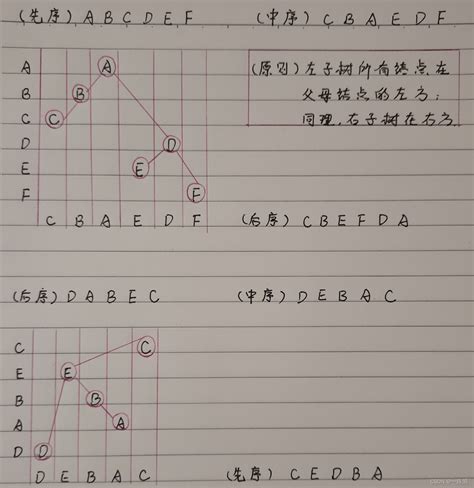 (先序) A B C D E F (中序) C B A E D F
A A
B B
C C
D D
E E
F F
C B A E D F
(原则) 左子树所有结点在
父母结点的左方;
同理,右子树在右方
(后序) C B E F D A
(后序) D A B E C (中序) D E B A C
C C
E E
B B
A A
D D
D E B A C
(先序) C E D B A